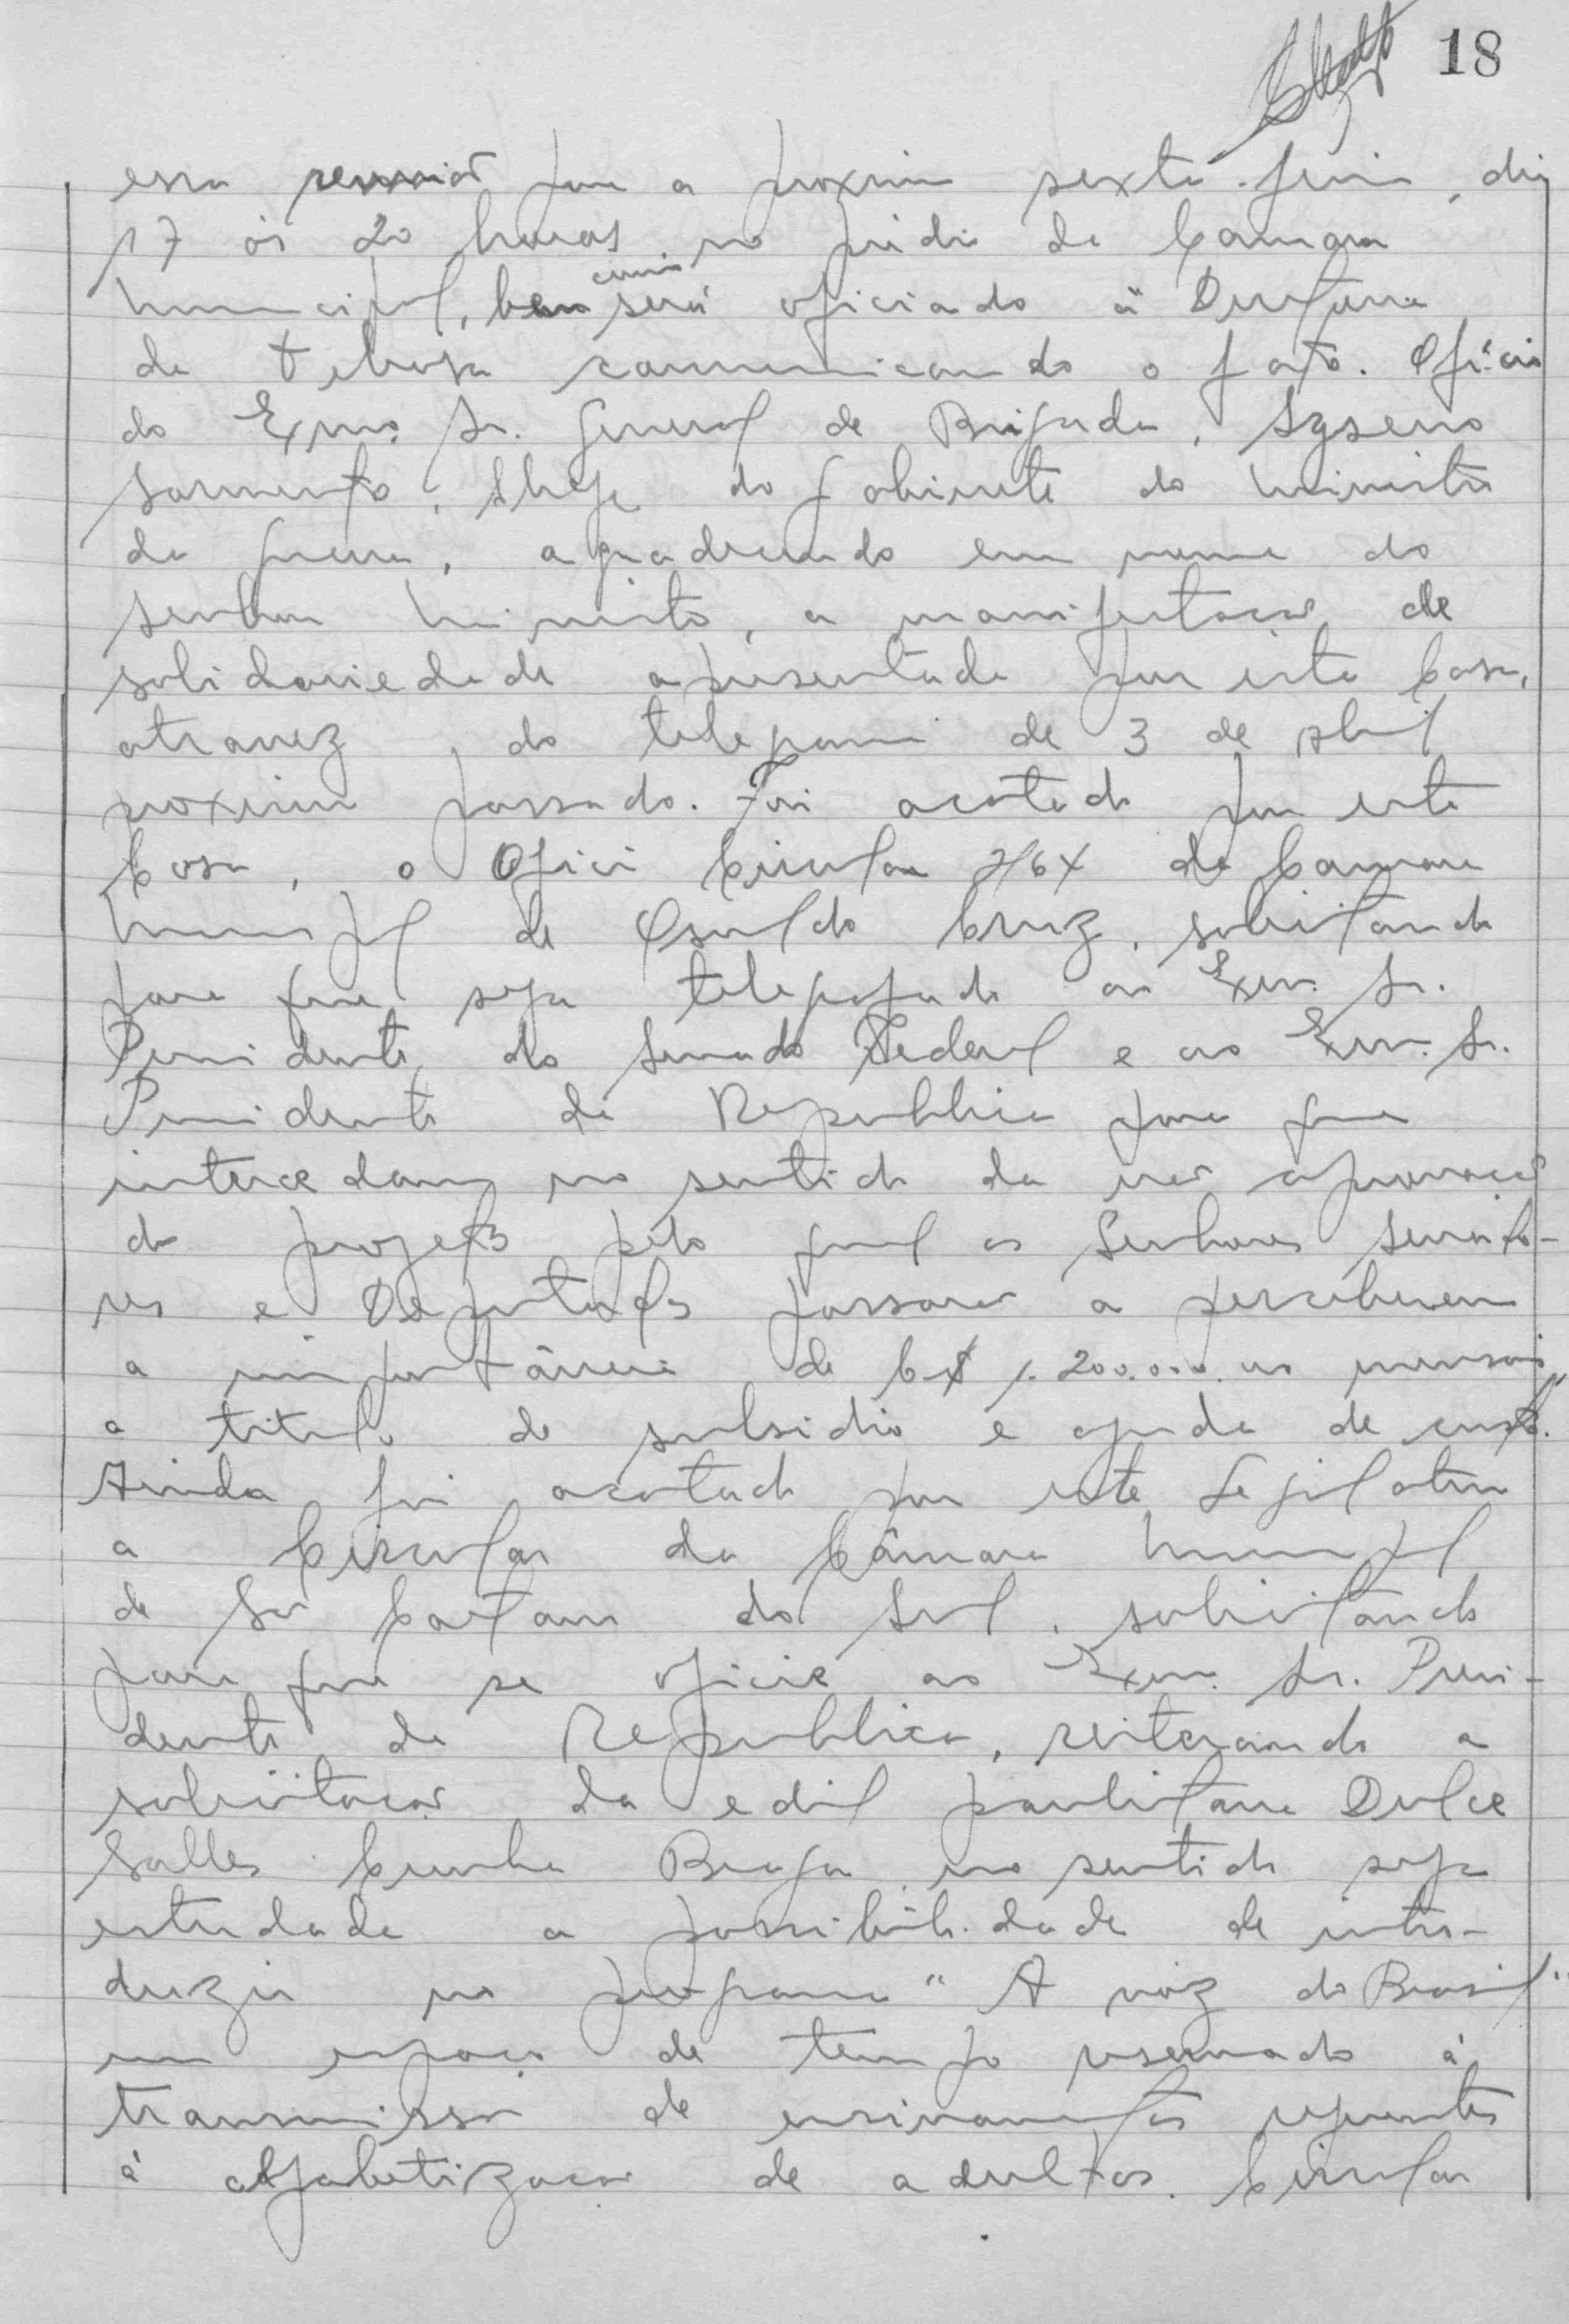 18
essa reunião para a proxima sexta-feira, dia
17 às 20 horas, no prédio da Camara
como
Municipal, bem será oficiado á
de comunicando o fato. Ofício
do Exmo. Sr. General de Brigada, Syseno
Sarmento, Chefe do Gabinete do Ministro
da Guerra, agradecendo em nome do
Senhor Ministro, a manifestação de
solidariedade apresentada por esta Casa,
atravez, do telegrama de 3 de abril
proximo passado. Foi acatado por esta
Casa, o Oficio Circular 2/64 da Camara
Municipal de Osvaldo Cruz, solicitando
para que seja telegrafado ao Exmo. Sr.
Presidente do Senado Federal e ao Exmo. Sr.
Presidente da Republica para que
intercedam no sentido da não aprovação
do projeto pelo qual os Senhores Senado-
res e Deputados passarão a perceberem
a importância de Cr$ 1.200.000,00 mensais
a titulo de subsidio e ajuda de custo.
Ainda foi acatado por este Legislativo
a Circular da Câmara Municipal
de São Caetano do Sul, solicitando
para que se oficie ao Exmo. Sr. Presi-
dente da Republica, reiterando a
solicitação da edil paulistana Dulce
Salles Cunha Braga, no sentido seja
estudada a possibilidade de intro-
duzir no programa "A voz do Brasil"
um espaço de tempo reservado á
transmissão de ensinamentos referentes
á alfabetização de adultos. Circular